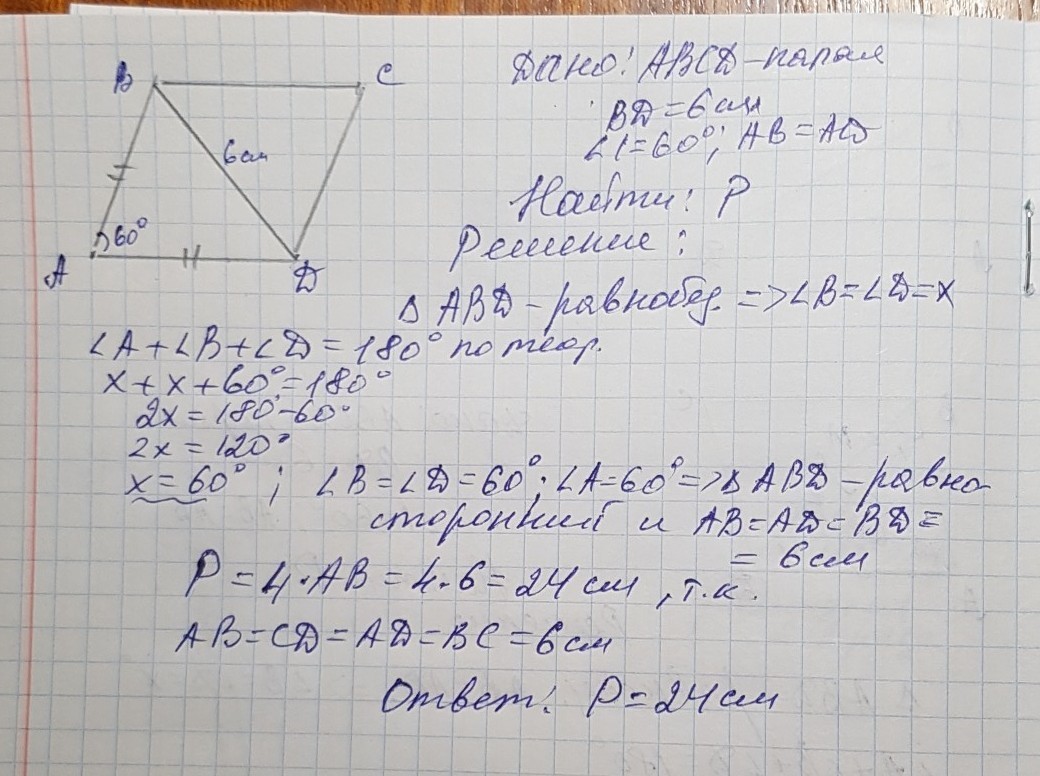 B
C
6см
60°
A
D
Дано: ABCD-парал
BD=6см
∠1=60°; AB=AD
Найти: P
Решение:
Δ ABD-равнобед. => ∠B=∠D=x
∠A+∠B+∠D=180° по теор.
x+x+60°=180°
2x=180-60°
2x=120°
x=60° ; ∠B=∠D=60°; ∠A=60° => Δ ABD-равно
сторонний и AB=AD=BD=
= 6см
P=4·AB=4·6=24 см , т.к.
AB=CD=AD=BC=6см
Ответ: P=24см